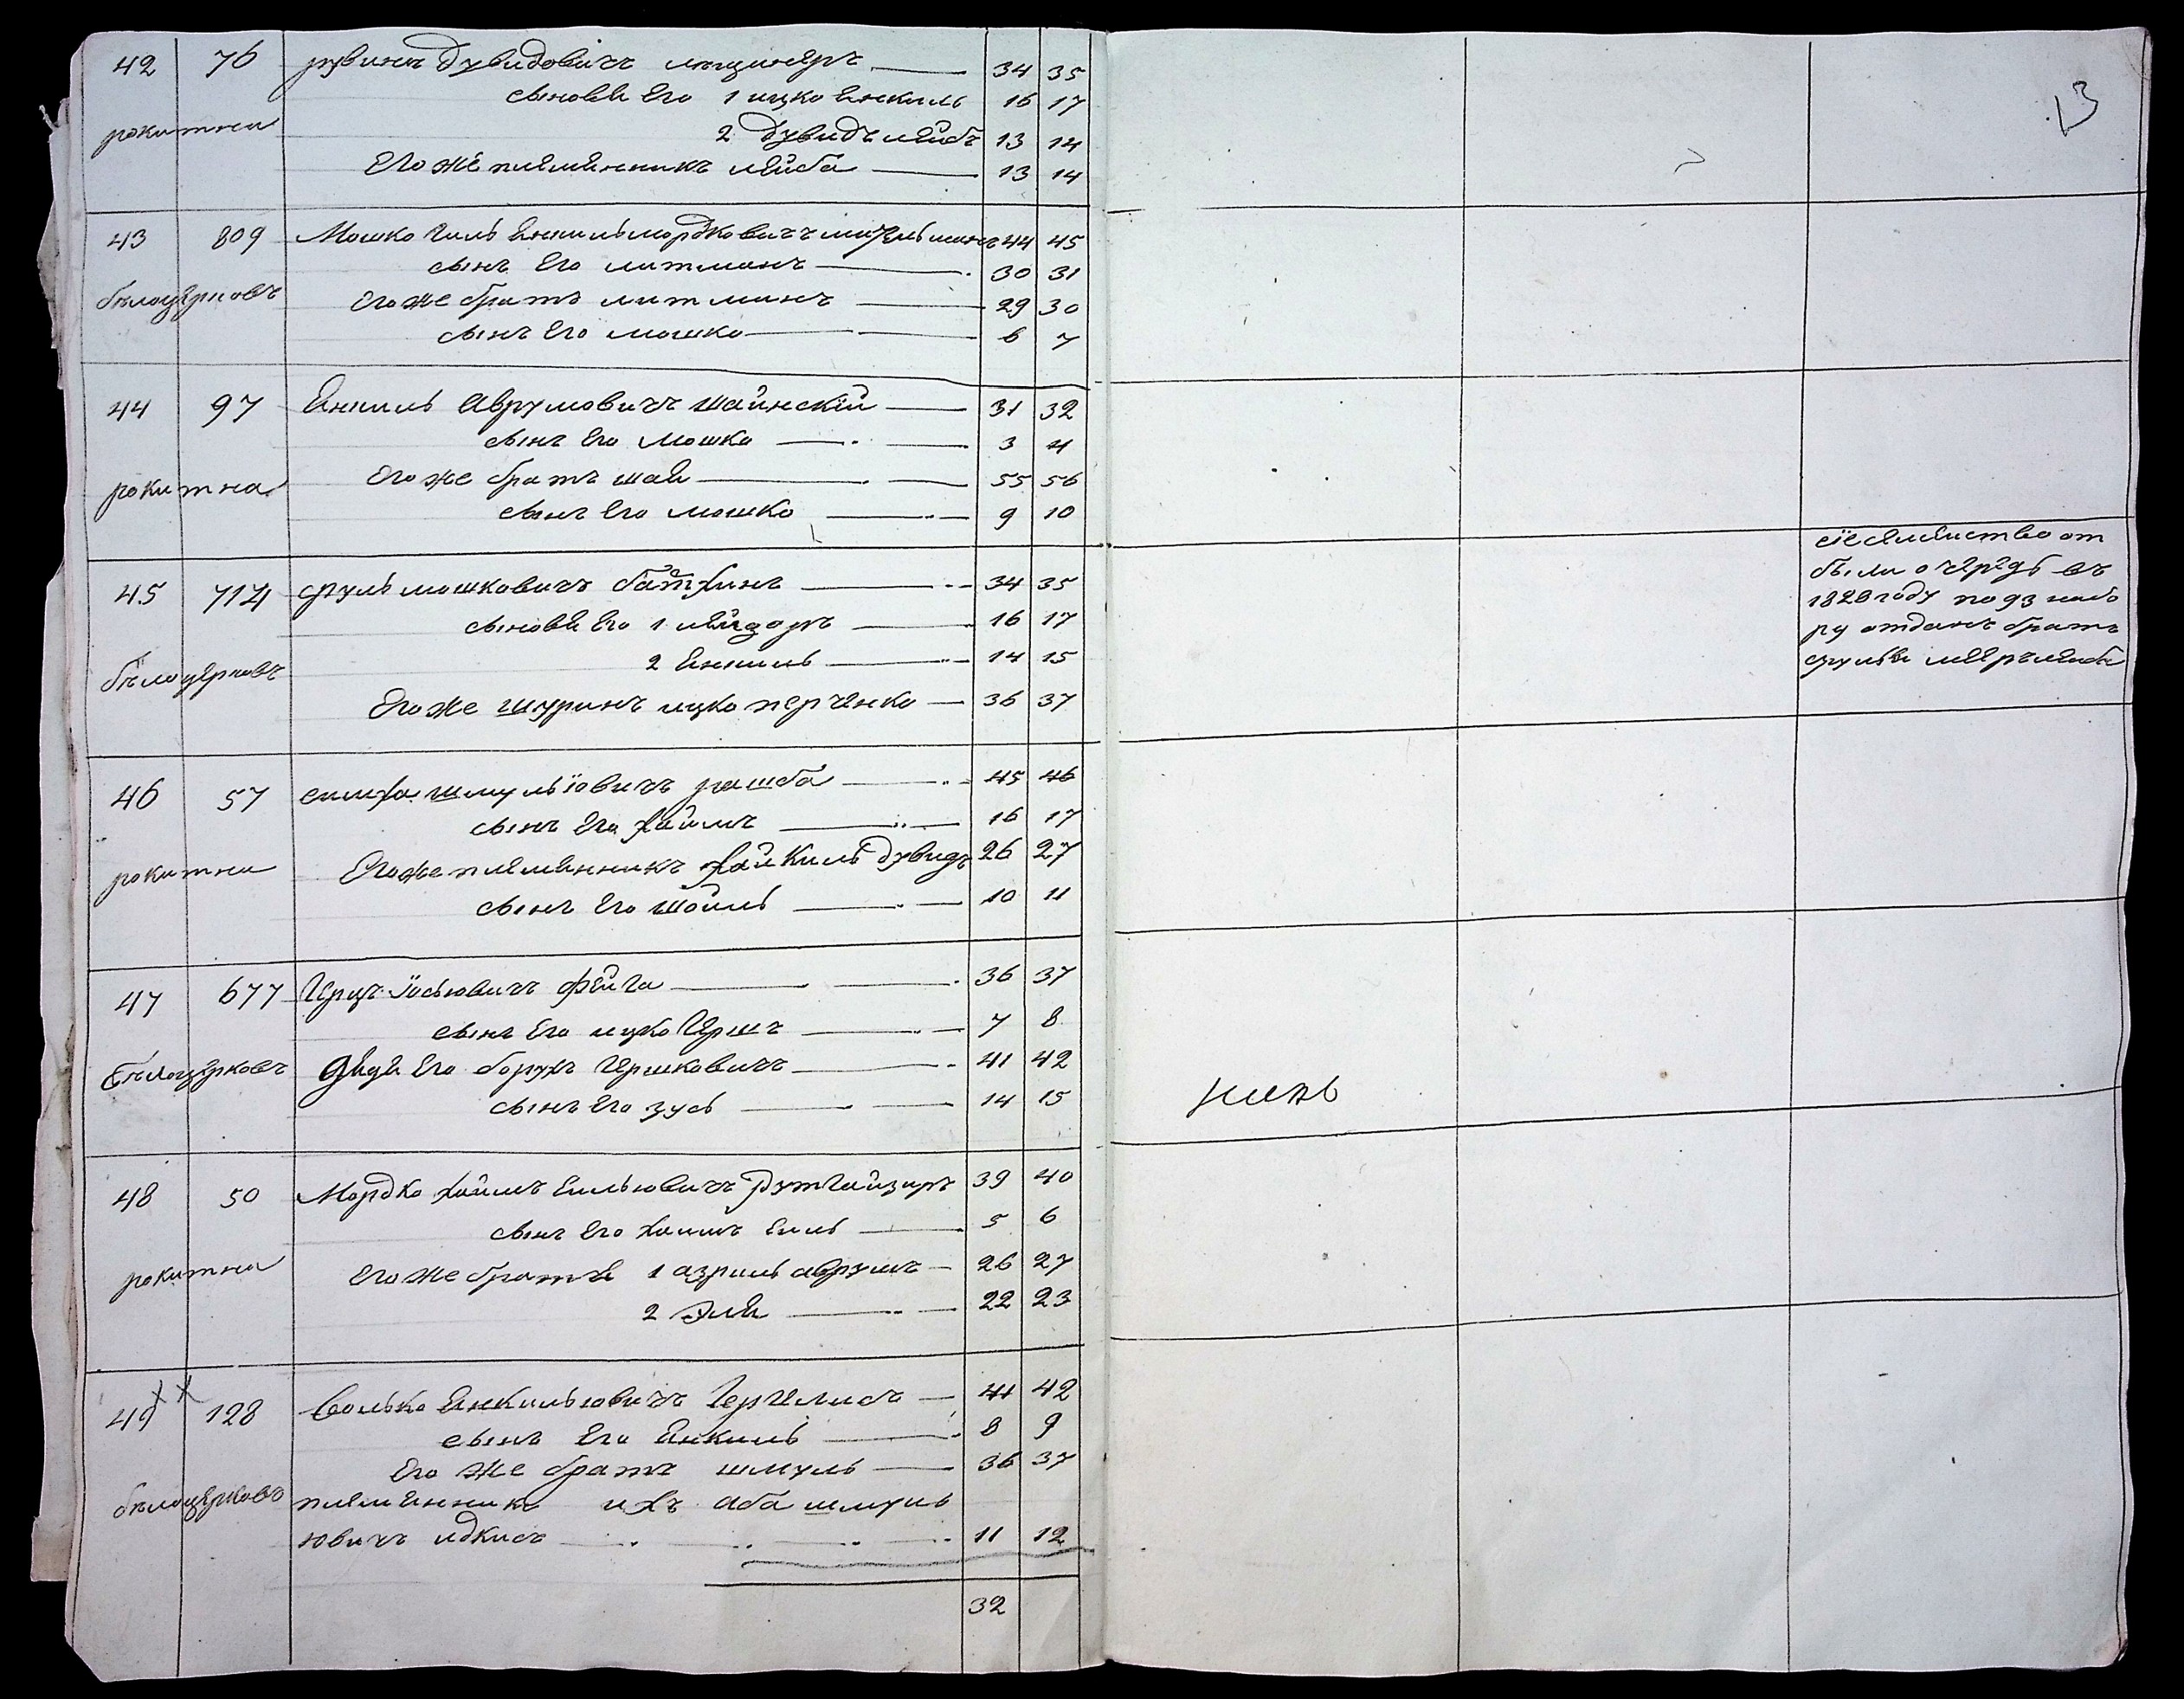 13
42 76 рувинъ Дувидовичъ 34 35
сыновя Его 1 ицко Янкиль 16 17
2 Дувидъ лейбъ 13 14
рокитна
Его же племянникъ лейба 13 14
43 809 Мошко Гиль Янкиль мордковичъ 44 45
сынъ Его литманъ 30 31
бѣлоцерковъ
его же братъ литманъ 29 30
сынъ Его мошко 6 7
44 97 Янкиль Аврумовичъ шаинскій 31 32
сынъ Его Мошко 3 4
рокитна
Его же братъ шая 55 56
сынъ Его мошко 9 10
45 714 сруль мошковичъ 34 35
сыновя Его 1 лейзоръ 16 17
2 Янкиль 14 15
бѣлоцерковъ
Его же шуринъ ицко перченко 36 37
сіе семейство от
были очередь въ
1828 году по 93 набо
ру отданъ братъ
сруля мееръ лейба
46 57 симха шмульіовичъ рашба 45 46
сынъ Его Хаимъ 16 17
рокитна
Его же племянникъ Хайкиль Дувидъ 26 27
сынъ Его шоиль 10 11
47 677 Герцъ Іосьювичъ Фейга 36 37
сынъ Его ицко Гершъ 7 8
бѣлоцерковъ
дядя Его борухъ Гершковичъ 41 42
сынъ Его зусь 14 15
48 50 Мордко Хаимъ Еильювичъ Рутгайзиръ 39 40
сынъ Его Хаимъ Еиль 5 6
рокитна
Его же братя 1 азриль аврумъ 26 27
2 Эля 22 23
49 128 Волько Янкильювичъ 41 42
сынъ Его Янкиль 8 9
Его же братъ шмуль 36 37
бѣлоцерковъ
племянникъ ихъ Аба шмуль
ювичъ идкисъ 11 12
32